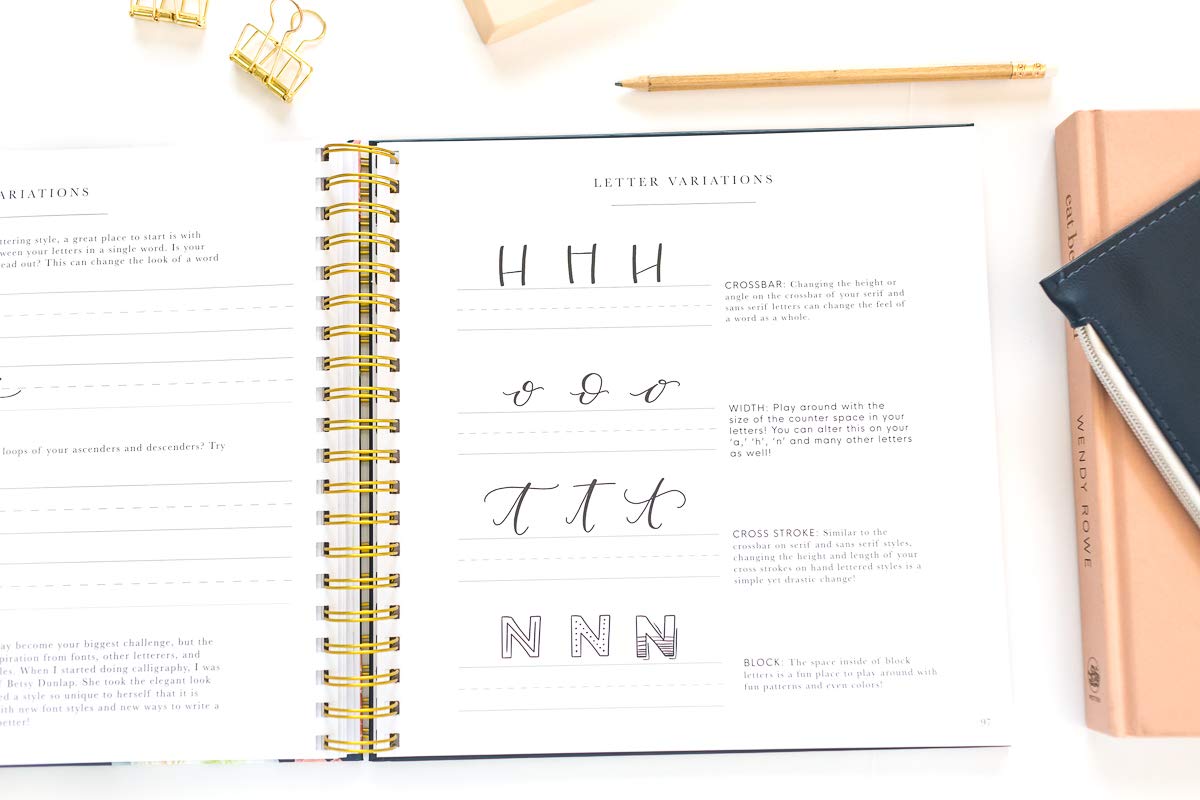 ARIATIONS
ttering style, a great place to start is with
ween your letters in a single word. Is your
ead out? This can change the look of a word
loops of your ascenders and descenders? Try
ay become your biggest challenge, but the
piration from fonts, other letterers, and
les. When I started doing calligraphy, I was
Betsy Dunlap. She took the elegant look
ed a style so unique to herself that it is
ith new font styles and new ways to write a
better!
LETTER VARIATIONS
H H H
CROSSBAR: Changing the height or
angle on the crossbar of your serif and
sans serif letters can change the feel of
a word as a whole.
o o o
WIDTH: Play around with the
size of the counter space in your
letters! You can alter this on your
'a,' 'h', 'n' and many other letters
as well!
t t t
CROSS STROKE: Similar to the
crossbar on serif and sans serif styles,
changing the height and length of your
cross strokes on hand lettered styles is a
simple yet drastic change!
N N N
BLOCK: The space inside of block
letters is a fun place to play around with
fun patterns and even colors!
97
eat
WENDY ROWE